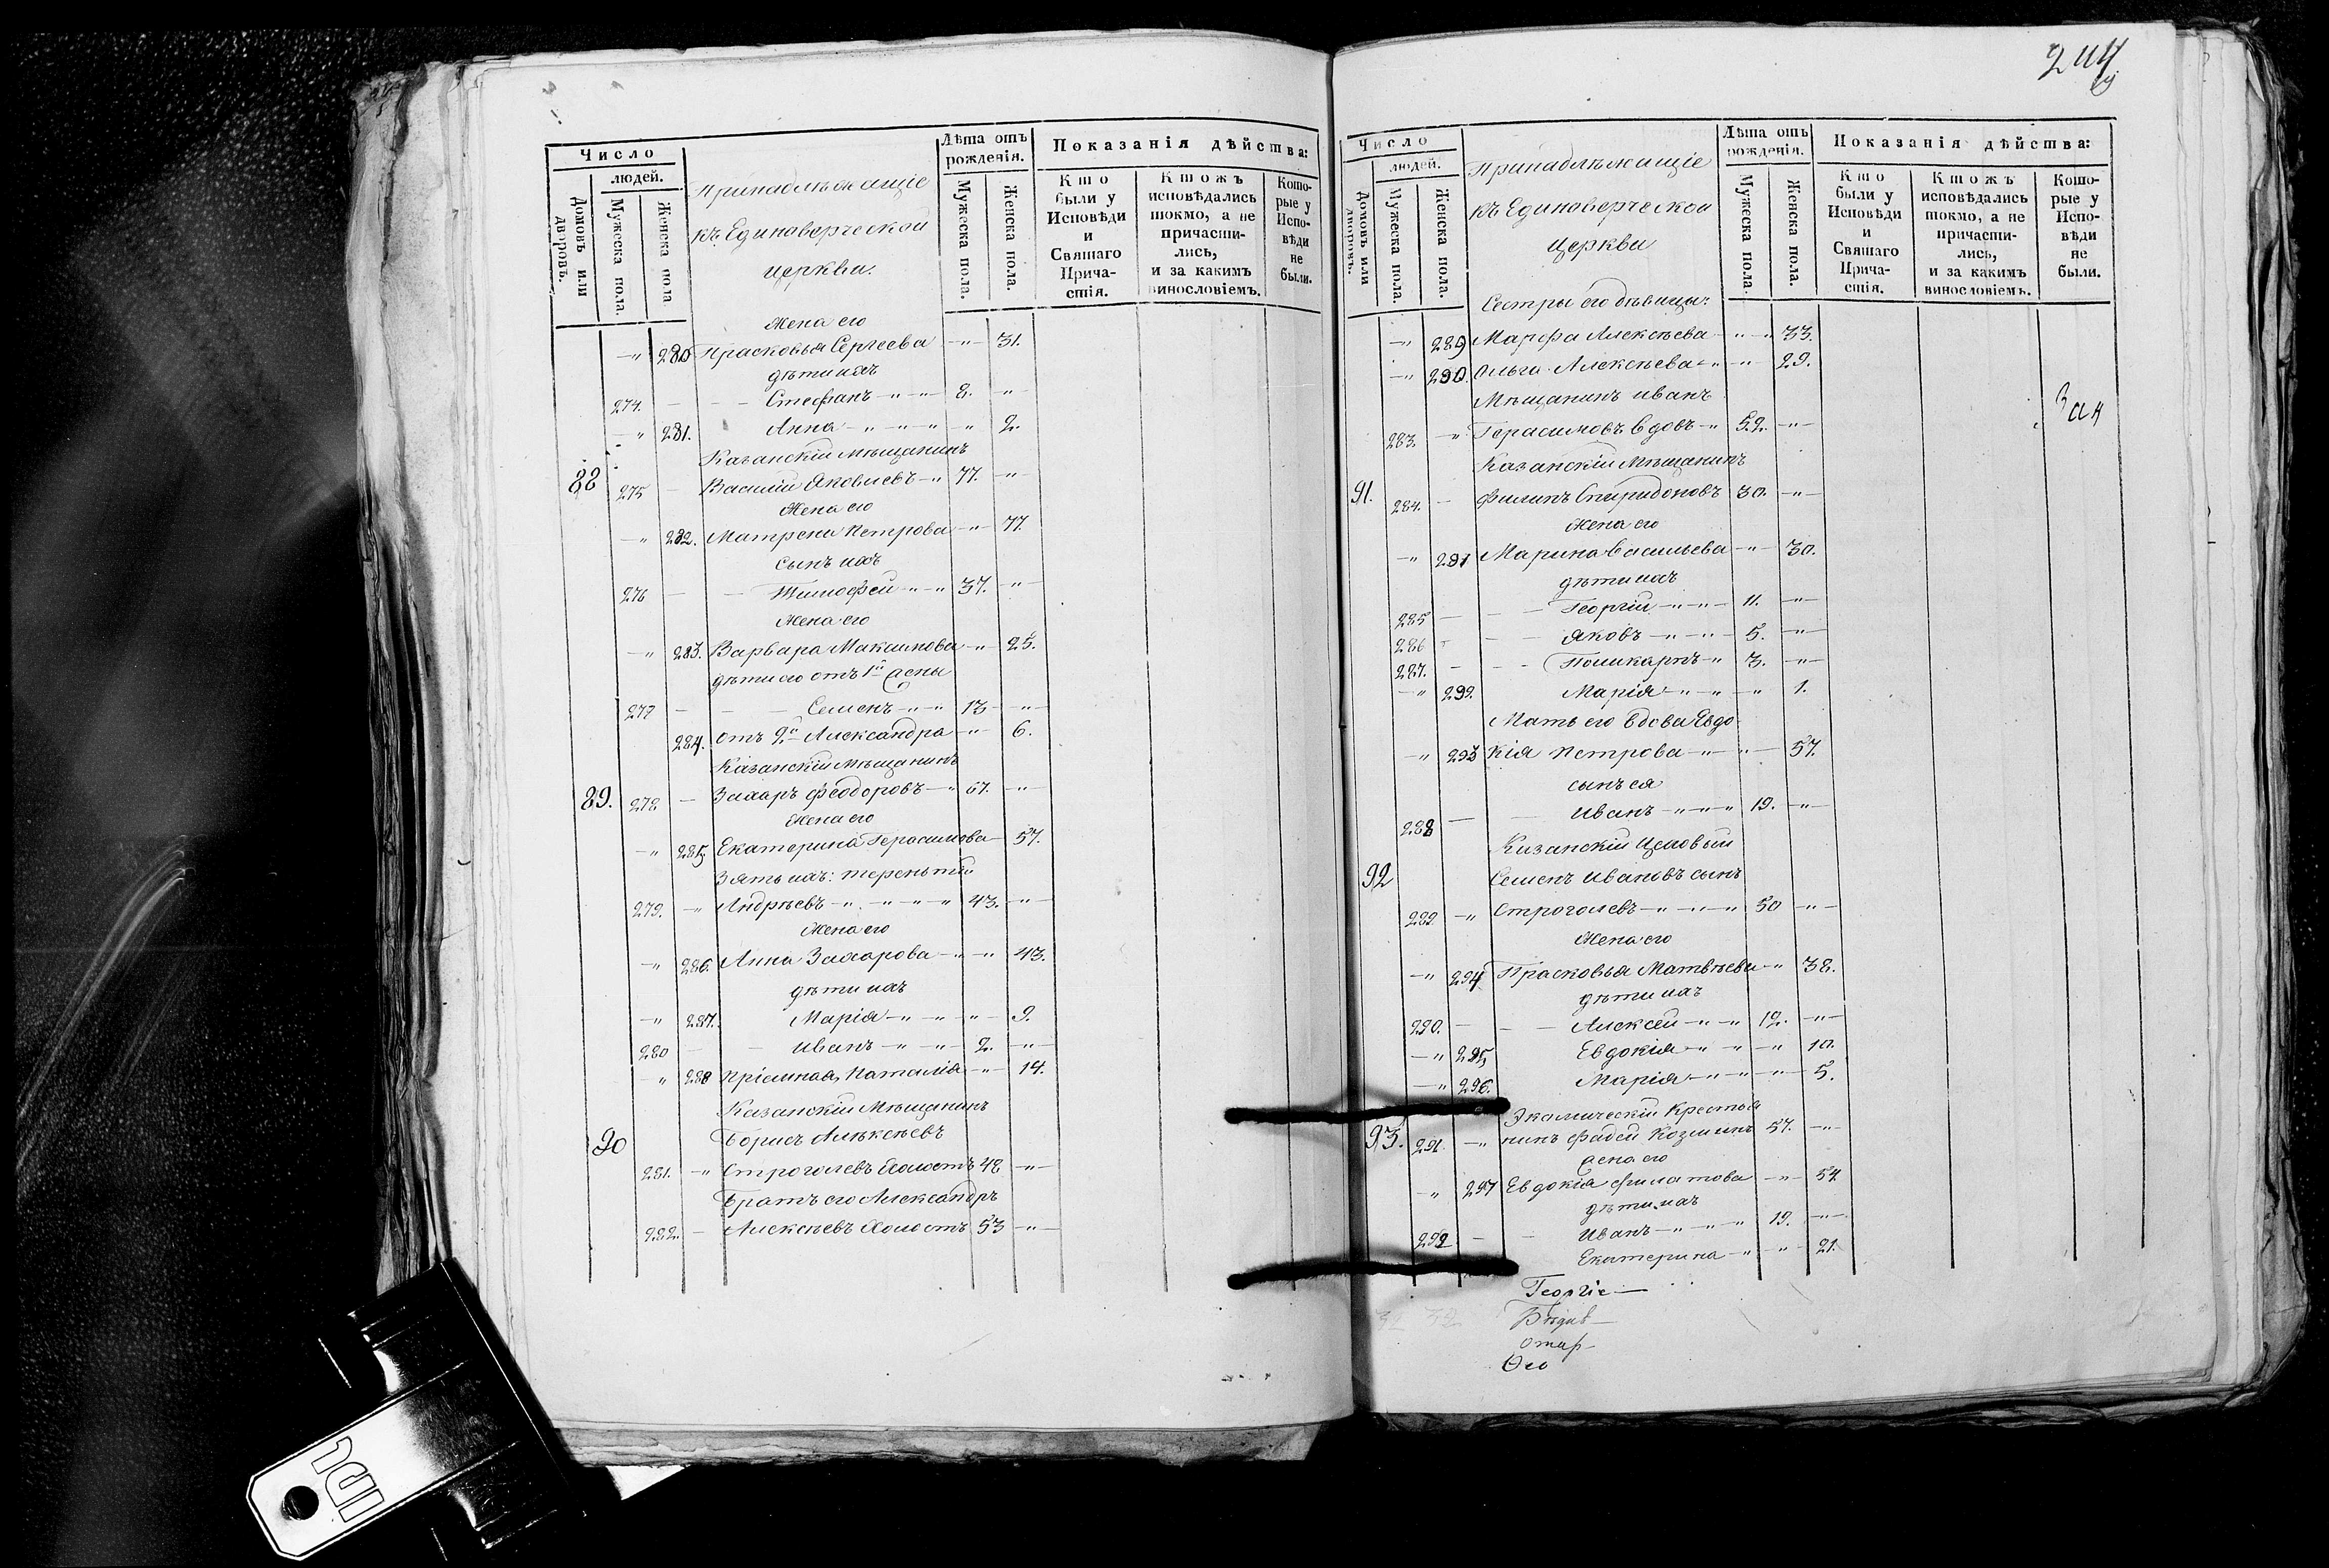 Число
людей.
Домовъ или дворовъ.
Мужеска пола.
Женска пола
Принадлѣжащіе
къ Единоверческой
церкви.
Лѣта отъ
рожденія.
Мужеска пола.
Женска пола.
Показанія дѣйства:
Кто
были у
Исповѣди
и
Святаго
Прича-
стія.
Ктожъ
исповѣдались
токмо, а не
причасти-
лись,
и за какимъ
винословіемъ.
Кото-
рые у
Испо-
вѣди
не
были.
Жена его
280 Прасковья Сергеева 31.
дѣти ихъ
274. Стефанъ 8.
281. Анна 2.
Казанскій Мѣщанинъ
88 275 Василій Яковлевъ 77.
Жена его
282. Матрена Петрова 77.
сынъ ихъ
276 Тимофей 37.
Жена его
283. Варвара Максимова 25.
дѣти его отъ 1й жены
277 Семенъ 13
284. отъ 2й Александра 6.
Казанскій Мѣщанинъ
89. 278 Захаръ Феодоровъ 67.
Жена его
285. Екатерина Герасимова 57.
Зять ихъ: терентій
279. Андрѣевъ 43.
Жена его
286. Анна Захарова 43.
дѣти ихъ
287. Марія 9.
280 Иванъ 2.
288 пріемная Наталія 14.
Казанскій Мѣщанинъ
90 Борисъ Алѣксѣевъ
281. Строгалевъ Холостъ 48
Братъ его Александръ
282. Алексѣевъ Холостъ 53
Число
людей.
Домовъ или дворовъ.
Мужеска пола.
Женска пола.
Принадлѣжащіе
къ Единоверческой
церкви
Лѣта отъ
рожденія.
Мужеска пола.
Женска пола.
Показанія дѣйства:
Кто
были у
Исповѣди
и
Святаго
Прича-
стія.
Ктожъ
исповѣдались
токмо, а не
причасти-
лись,
и за какимъ
винословіемъ.
Кото-
рые у
Испо-
вѣди
не
были.
Сестры его дѣвицы
289 Марфа Алексѣева 33.
290. Ольга Алексѣева 29.
Мѣщанинъ иванъ
283. Герасимовъ вдовъ 52.
Казанскій Мѣщанинъ
91. 284. Филипъ Спиридоновъ 30.
Жена его
291 Марина Васильева 30.
дѣти ихъ
285 Георгій 11.
286 Яковъ 5.
287. Поликарпъ 3.
292. Марія 1.
Мать его вдова Евдо
293 кія Петрова 57.
сынъ ея
288 Иванъ 19.
Казанскій Цеховый
92 Семенъ Ивановъ сынъ
289 Строгалевъ 50
Жена его
294 Прасковья Матвѣева 38.
дѣти ихъ
290. Алексѣй 12.
295 Евдокія 10.
296. Марія 5.
Экамическій Крестья
93. 291. нинъ Фадей Козминъ 57.
жена его
297 Евдокія Филатова 54.
дѣти ихъ
292 Иванъ 19.
Екатерина 21.
Георгіе